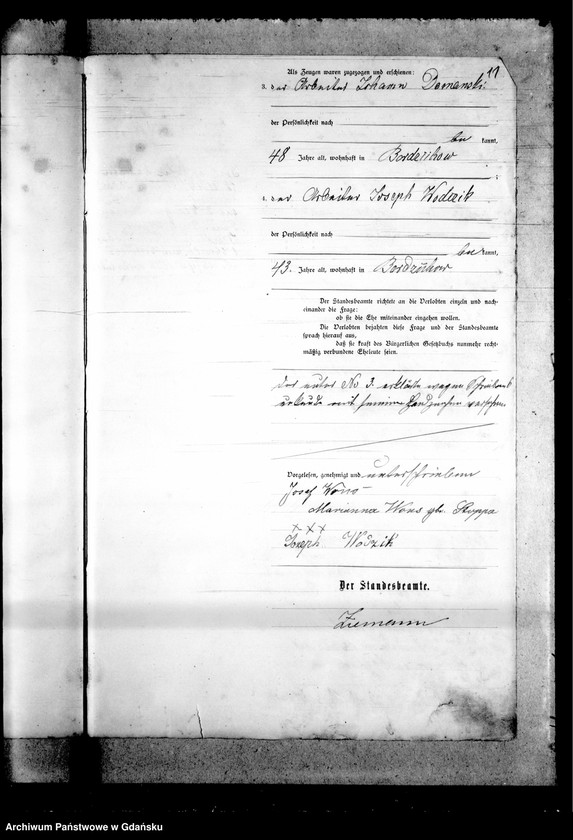 11
Als Zeugen waren zugezogen und erschienen:
3. der Arbeiter Johann Domanski
der Persönlichkeit nach
be kannt,
48 Jahre alt, wohnhaft in Bordzichow
;
4. der Arbeiter Joseph Wodzik
der Persönlichkeit nach
be kannt,
43. Jahre alt, wohnhaft in Bordzichow
Der Standesbeamte richtete an die Verlobten einzeln und nach-
einander die Frage:
ob sie die Ehe miteinander eingehen wollen.
Die Verlobten bejahten diese Frage und der Standesbeamte
sprach hierauf aus,
daß sie kraft des Bürgerlichen Gesetzbuchs nunmehr recht-
mäßig verbundene Eheleute seien.
Der unter No 3. erklärte wegen
mit seinem Handzeichen versehen.
Vorgelesen, genehmigt und unterschrieben
Josef Wons
Marianna Wons gb. Skoppa
x x x
Joseph Wodzik
Der Standesbeamte.
Ziemann
Archiwum Państwowe w Gdańsku